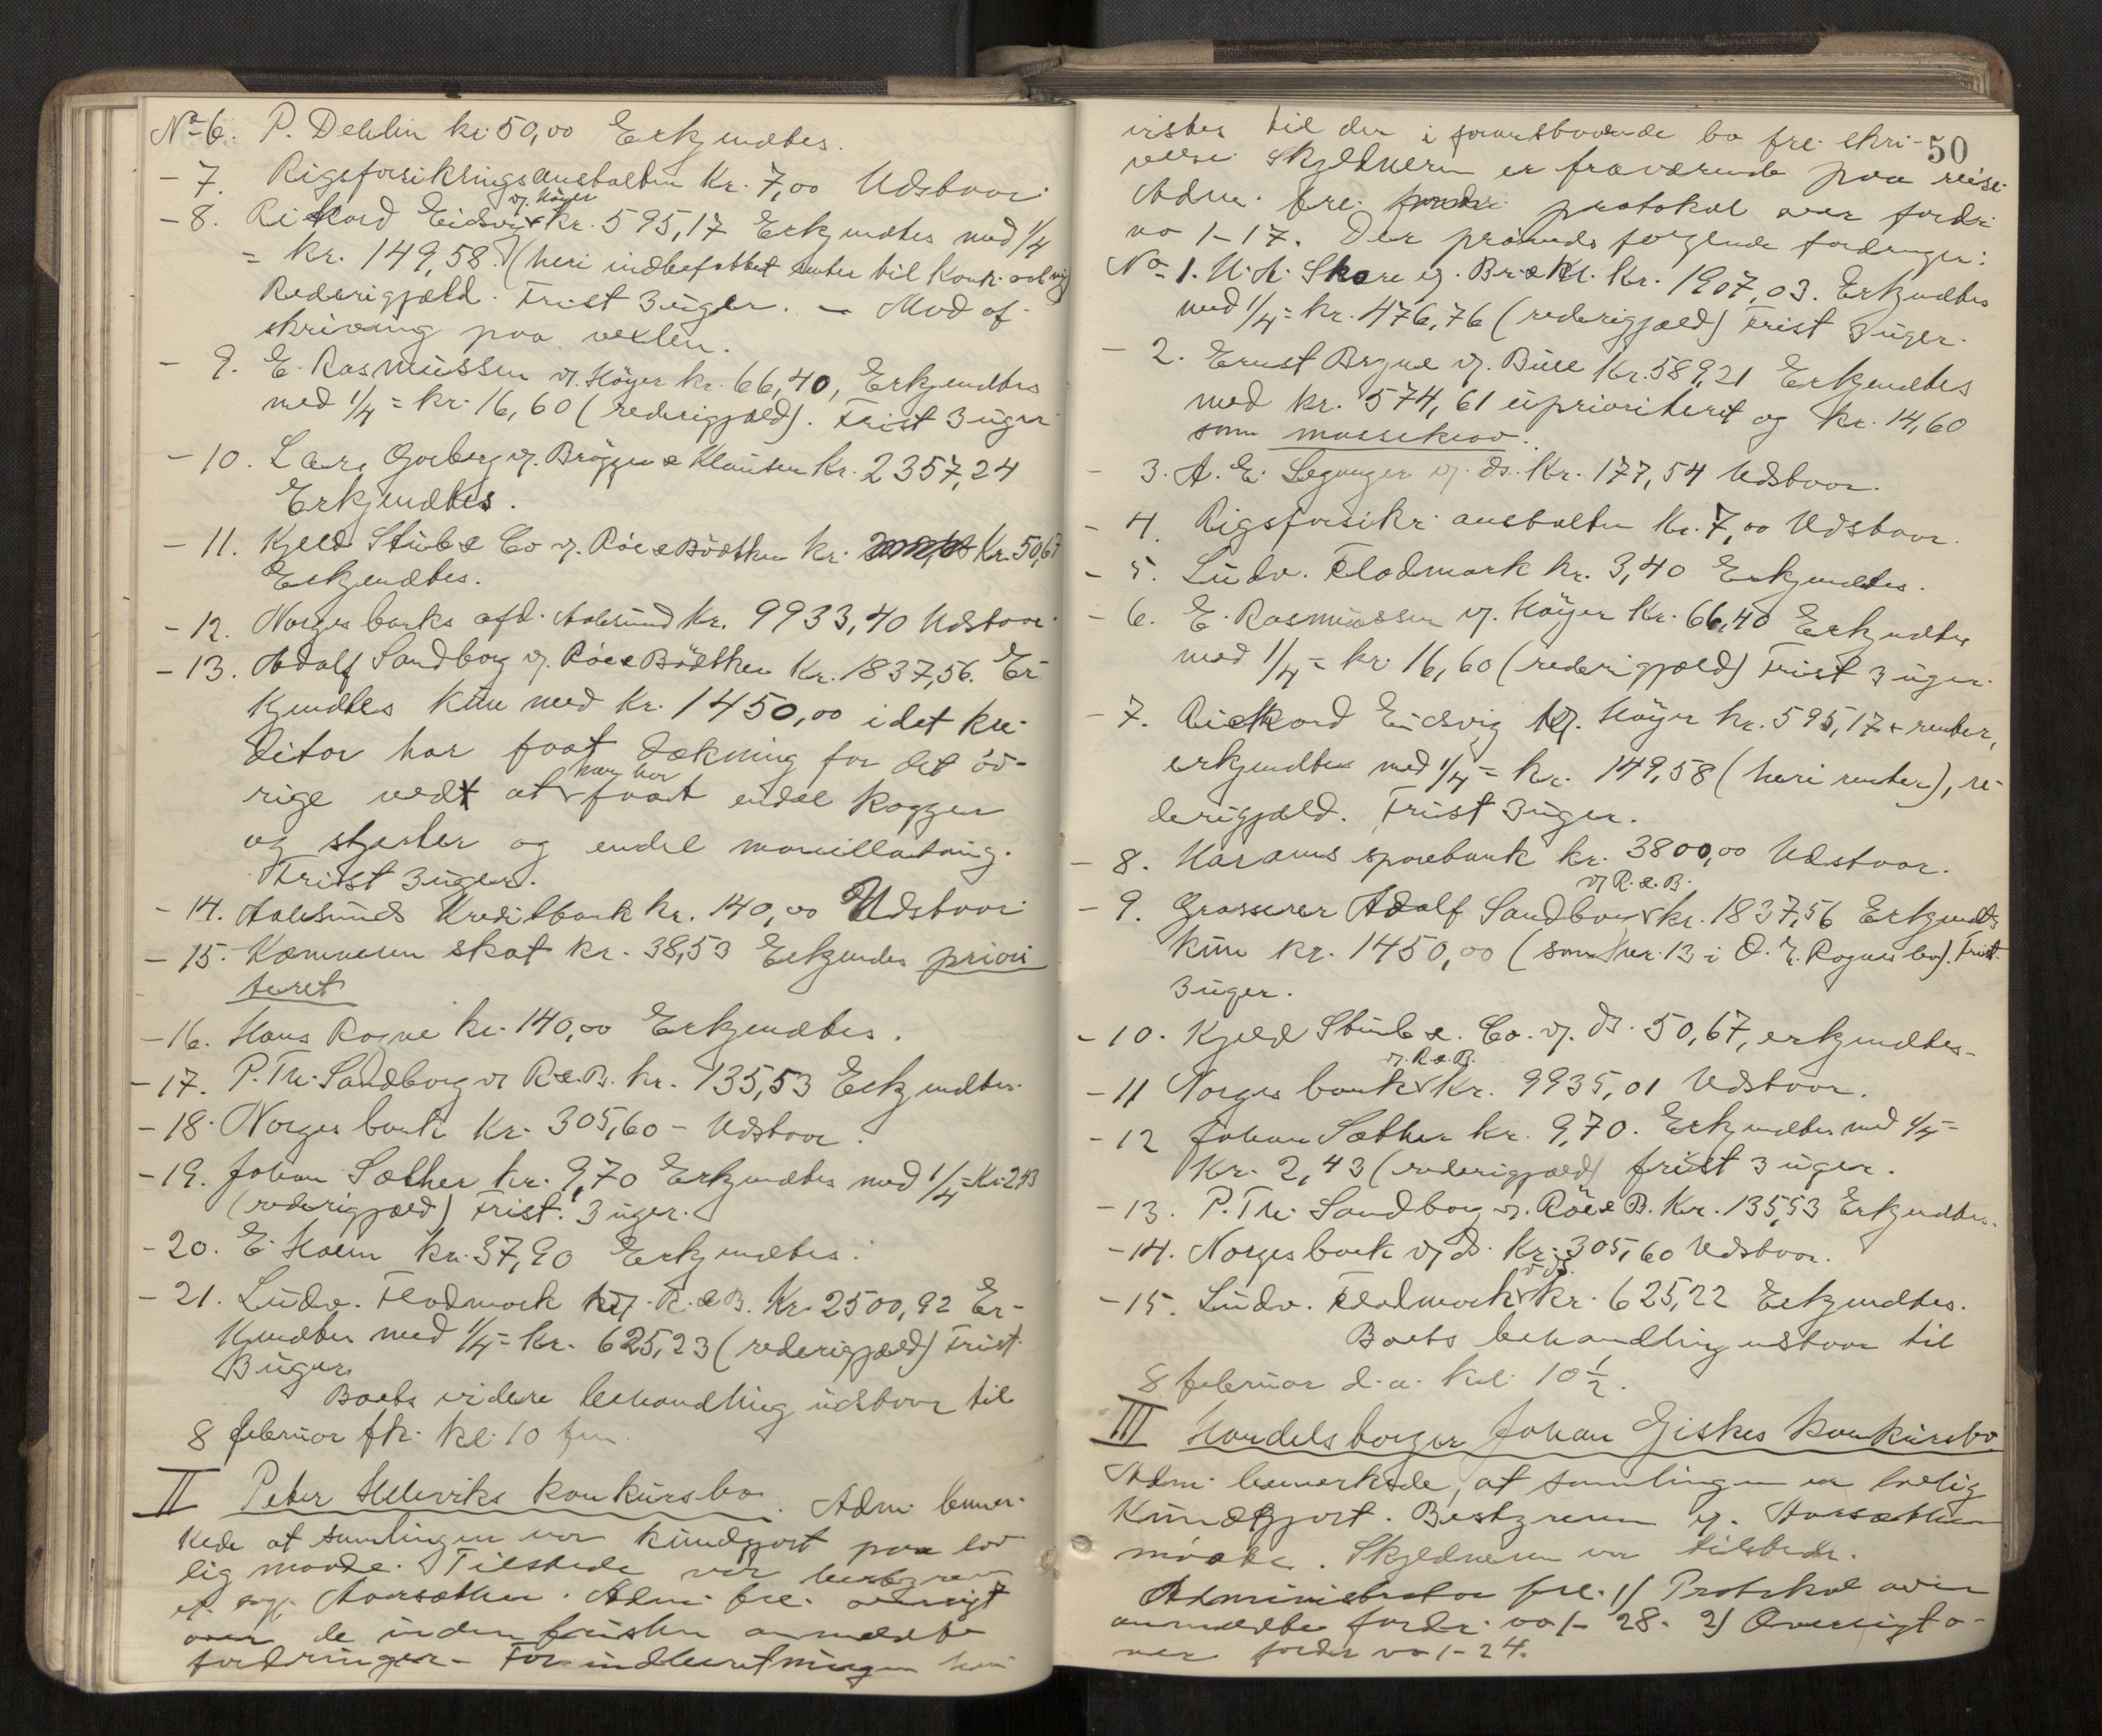 No 6. P. Dehlin kr. 50,00 Erkjendtes.
- 7. Rigsforsikringsanstalten Kr. 7,00 Udstaar.
v. Höyer
- 8. Rickard Eidsvig kr. 595,17 Erkjendtes med 1/4
= kr. 149,58 (heri indbefattet renter til konk. aabning
Rederigjæld. Frist 3 uger. - Mod af-
skrivning paa vexlen.
- 9. E. Rasmussen v. Höyer kr. 66,40, Erkjendtes
med 1/4 = kr. 16,60 (rederigjæld). Frist 3 uger
- 10. Lars v. Brögger & Klausen Kr. 2357,24
Erkjendtes.
- 11. Kjeld Stub & Co v. Röe & Bödtker kr. Kr. 50,67
Erkjendtes.
- 12. Norges banks afd. Aalesund kr. 9933,40 Udstaar.
- 13. Adolf Sandborg v. Röe & Bödtker Kr. 1837,56. Er-
kjendtes kun med Kr. 1450,00 idet kre-
ditor har faat dækning for det öv-
man har
rige ved at faat endel kagger
og stjerter og endel
Frist 3 uger.
- 14. Aalesunds Kreditbank kr. 140,00 Udstaar
- 15. Kæmneren skat kr. 38,53 Erkjendes priori
teret
- 16. Hans Rogne kr. 140,00 Erkjendtes.
- 17. P. Th. Sandborg v R & B. kr. 135,53 Erkjendtes.
- 18. Norges bank Kr. 305,60 - Udstaar.
- 19. Johan Sæther kr. 9,70 Erkjendtes med 1/4 = Kr. 2,43
(rederigjæld) Frist. 3 uger.
- 20. E. Holm kr. 37,90 Erkjendtes.
- 21. Ludv. Flodmark v. R. & B. Kr. 2500,92 Er-
kjendtes med 1/4 = kr. 625,23 (rederigjæld) Frist.
3 uger.
Boets videre behandling udstaar til
8 februar fk. kl. 10 fm.
II Peter Ulleviks konkursbo. Adm. bemer-
kede at samlingen var kundgjort paa lov-
lig maade. Tilstede var bestyreren
Aarsæther. Adm. fre. oversigt
over de inden fristen anmeldte
fordringer. - For indberetningen hen
50
vistes til den i foranstaaende bo fre. skri-
velse. Skyldneren er fraværende paa reise.
Adm. fre. protokol over fordr.
no 1-17. Der prövedes fölgende fordringer:
No 1. U. A. Skare v. Br. & Kl. Kr. 1907,03. Erkjendtes
med 1/4 = Kr. 476,76 (rederigjæld) Frist 3 uger.
- 2. Ernst Bryne v. Bull Kr. 589,21 Erkjendtes
med kr. 574,61 uprioritert og kr. 14,60
som massekrav.
- 3. A. E. Leganger v. ds. Kr. 177,54 Udstaar.
- 4. Rigsforsikr. anstalten Kr. 7,00 Udstaar.
- 5. Ludv. Flodmark kr. 3,40 Erkjendtes.
- 6. E. Rasmussen v. Höyer Kr. 66,40 Erkjendtes
med 1/4 = kr. 16,60 (rederigjæld) Frist 3 uger.
- 7. Rickard Eidsvig v. Höyer kr. 595,17 + renter,
erkjendtes med 1/4 = kr. 149,58 (heri renter), re-
derigjæld. Frist 3 uger.
- 8. Harams sparebank kr. 3800,00 Udstaar.
v R. & B.
- 9. Grosserer Adolf Sandborg kr. 1837,56 Erkjendtes
kun kr. 1450,00 (som nr. 13 i O. E. Rognes bo). Frist.
3 uger.
- 10. Kjeld Stub & Co. v. ds. 50,67, erkjendtes.
v. R & B.
- 11 Norges bank Kr. 9935,01 Udstaar.
- 12 Johan Sæther kr. 9,70. Erkjendtes med 1/4 =
Kr. 2,43 (rederigjæld) frist 3 uger.
- 13. P. Th. Sandborg v. Röe & B. Kr. 135,53 Erkjendtes.
- 14. Norges bank v. ds. Kr. 305,60 Udstaar.
v. ds.
- 15. Ludv. Flodmark kr. 625,22 Erkjendtes.
Boets behandling udstaar til
8 februar d. a. kl. 10 1/2.
III Handelsborger Johan Giskes konkursbo
Adm. bemerkede, at samlingen er lovlig
kundgjort. Bestyreren v. Aarsæther
mödte. Skyldneren var tilstede.
Administrator fre. 1) Protokol over
anmeldte fordr. no 1-28. 2) Oversigt o-
ver fordr no 1-24.